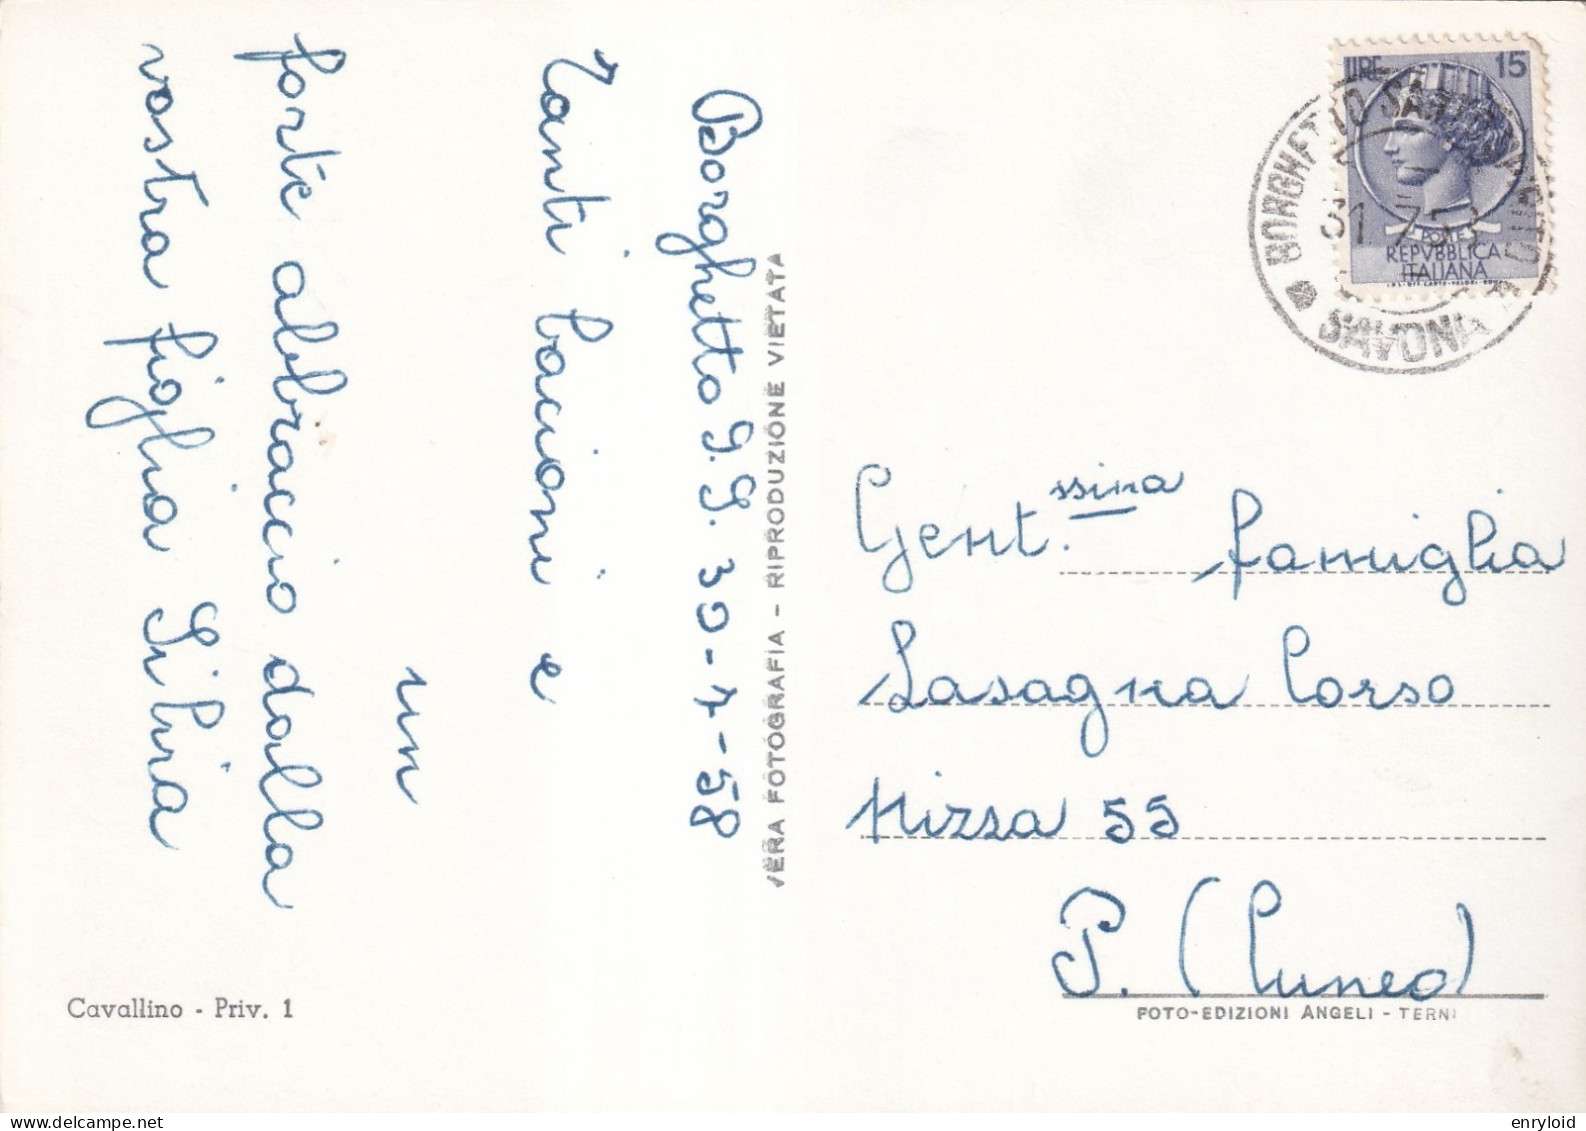 Borghetto S.S. 30-7-58
Tanti bacioni e
un
forte abbraccio dalla
vostra figlia Silvia
VERA FOTOGRAFIA - RIPRODUZIONE VIETATA
Cavallino - Priv. 1
LIRE 15
POSTE
REPVBBLICA
ITALIANA
BORGHETTO SANTO SPIRITO
31.7.58
SAVONA
Gent.ssima famiglia
Lasagna Corso
Nizza 55
P. (Cuneo)
FOTO-EDIZIONI ANGELI - TERNI
enryloid
delcampe.net